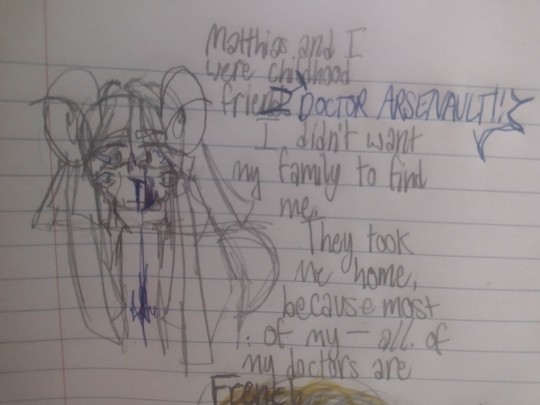 Matthias and I
were childhood
friends DOCTOR ARSENAULT!!
I didn't want
my family to find
me.
They took
me home,
because most
of my — all of
my doctors are
French